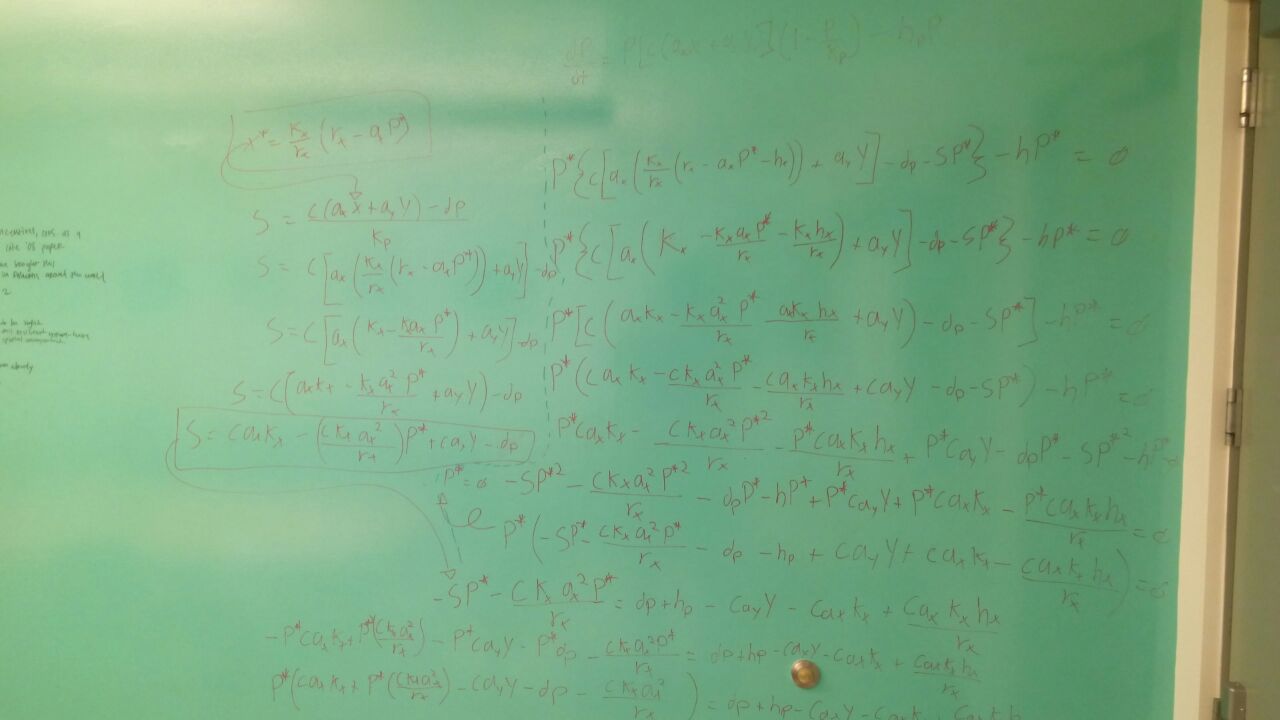 dP/dt = P[c(aₓX + aᵧY)](1 - P/kₚ) - hₚP
X* = kₓ/rₓ (rₓ - aₓP*)
S = (c(aₓX + aᵧY) - dₚ)/kₚ
S = c[aₓ(kₓ/rₓ (rₓ - aₓP*)) + aᵧY] - dₚ
S = c[aₓ(kₓ - kₓaₓP*/rₓ) + aᵧY] - dₚ
S = c(aₓkₓ - kₓaₓ²P*/rₓ + aᵧY) - dₚ
S = caₓkₓ - (ckₓaₓ²/rₓ)P* + caᵧY - dₚ
P*{c[aₓ(kₓ/rₓ (rₓ - aₓP* - hₓ)) + aᵧY] - dₚ - SP*} - hP* = 0
P*{c[aₓ(kₓ - kₓaₓP*/rₓ - kₓhₓ/rₓ) + aᵧY] - dₚ - SP*} - hP* = 0
P*[c(aₓkₓ - kₓaₓ²P*/rₓ akₓhₓ/rₓ + aᵧY) - dₚ - SP*] - hP* = 0
P*(caₓkₓ - ckₓaₓ²P*/rₓ - caₓkₓhₓ/rₓ + caᵧY - dₚ - SP*) - hP* = 0
P*caₓkₓ - ckₓaₓ²P*²/rₓ - P*caₓkₓhₓ/rₓ + P*caᵧY - dₚP* - SP*² - hP*
P* = 0
-SP*² - ckₓaₓ²P*²/rₓ - dₚP* - hP* + P*caᵧY + P*caₓkₓ - P*caₓkₓhₓ/rₓ = 0
P*(-SP* - ckₓaₓ²P*/rₓ - dₚ - hₚ + caᵧY + caₓkₓ - caₓkₓhₓ/rₓ) = 0
-SP* - ckₓaₓ²P*/rₓ = dₚ + hₚ - caᵧY - caₓkₓ + caₓkₓhₓ/rₓ
-P*caₓkₓ + P*(ckₓaₓ²/rₓ) - P*caᵧY - P*dₚ - ckₓaₓ²P*/rₓ = dₚ + hₚ - caᵧY - caₓkₓ + caₓkₓhₓ/rₓ
P*(caₓkₓ + P*(ckₓaₓ²/rₓ) - caᵧY - dₚ - ckₓaₓ²/rₓ) = dₚ + hₚ - caₓY - caₓkₓ + caₓkₓhₓ